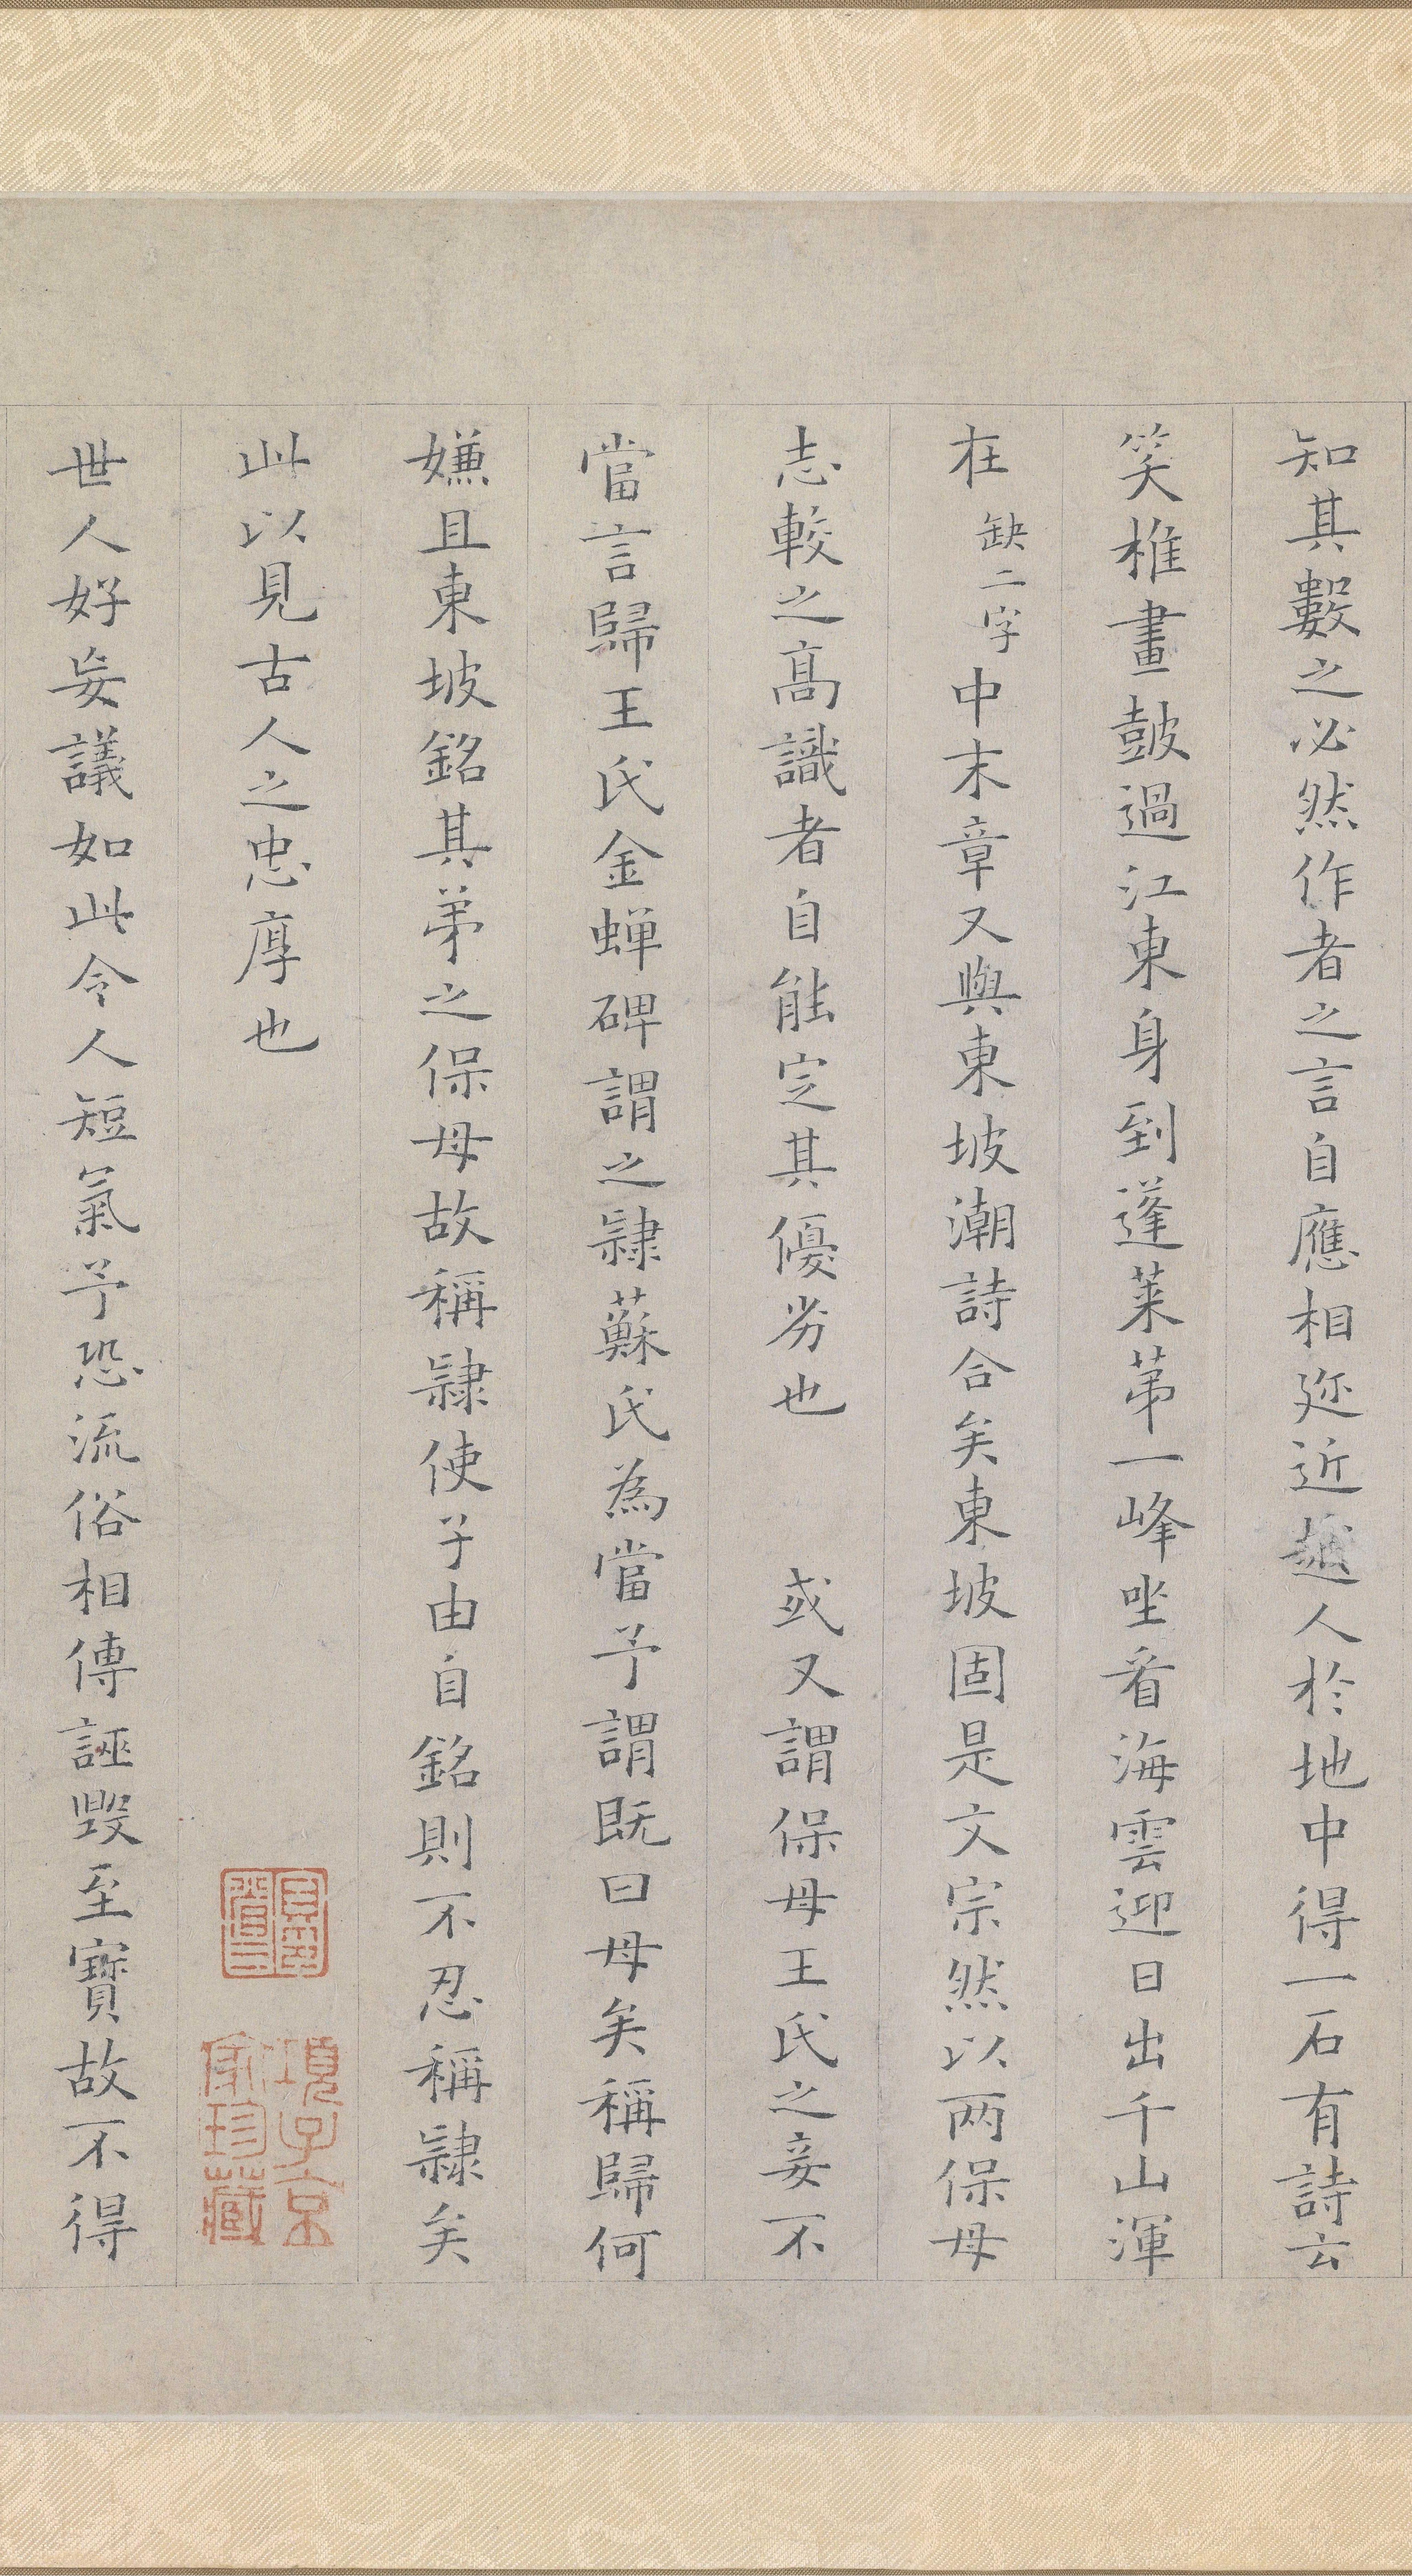 知其數之必然作者之言自應相迩近越人於地中得一石有詩云
笑椎畫鼓過江東身到蓬萊苐一峰坐看海雲迎日出千山渾
在缺二字中末章又與東坡潮詩合矣東坡固是文宗然以两保母
志較之高識者自能定其優劣也 或又謂保母王氏之妾不
當言歸王氏金蟬碑謂之隷蘇氏為當予謂既曰母矣稱歸何
嫌且東坡銘其弟之保母故稱隷使子由自銘則不忍稱隷矣
此以見古人之忠厚也
項子京
家珍藏
世人好妄議如此令人短氣予恐流俗相傳誣毀至寶故不得